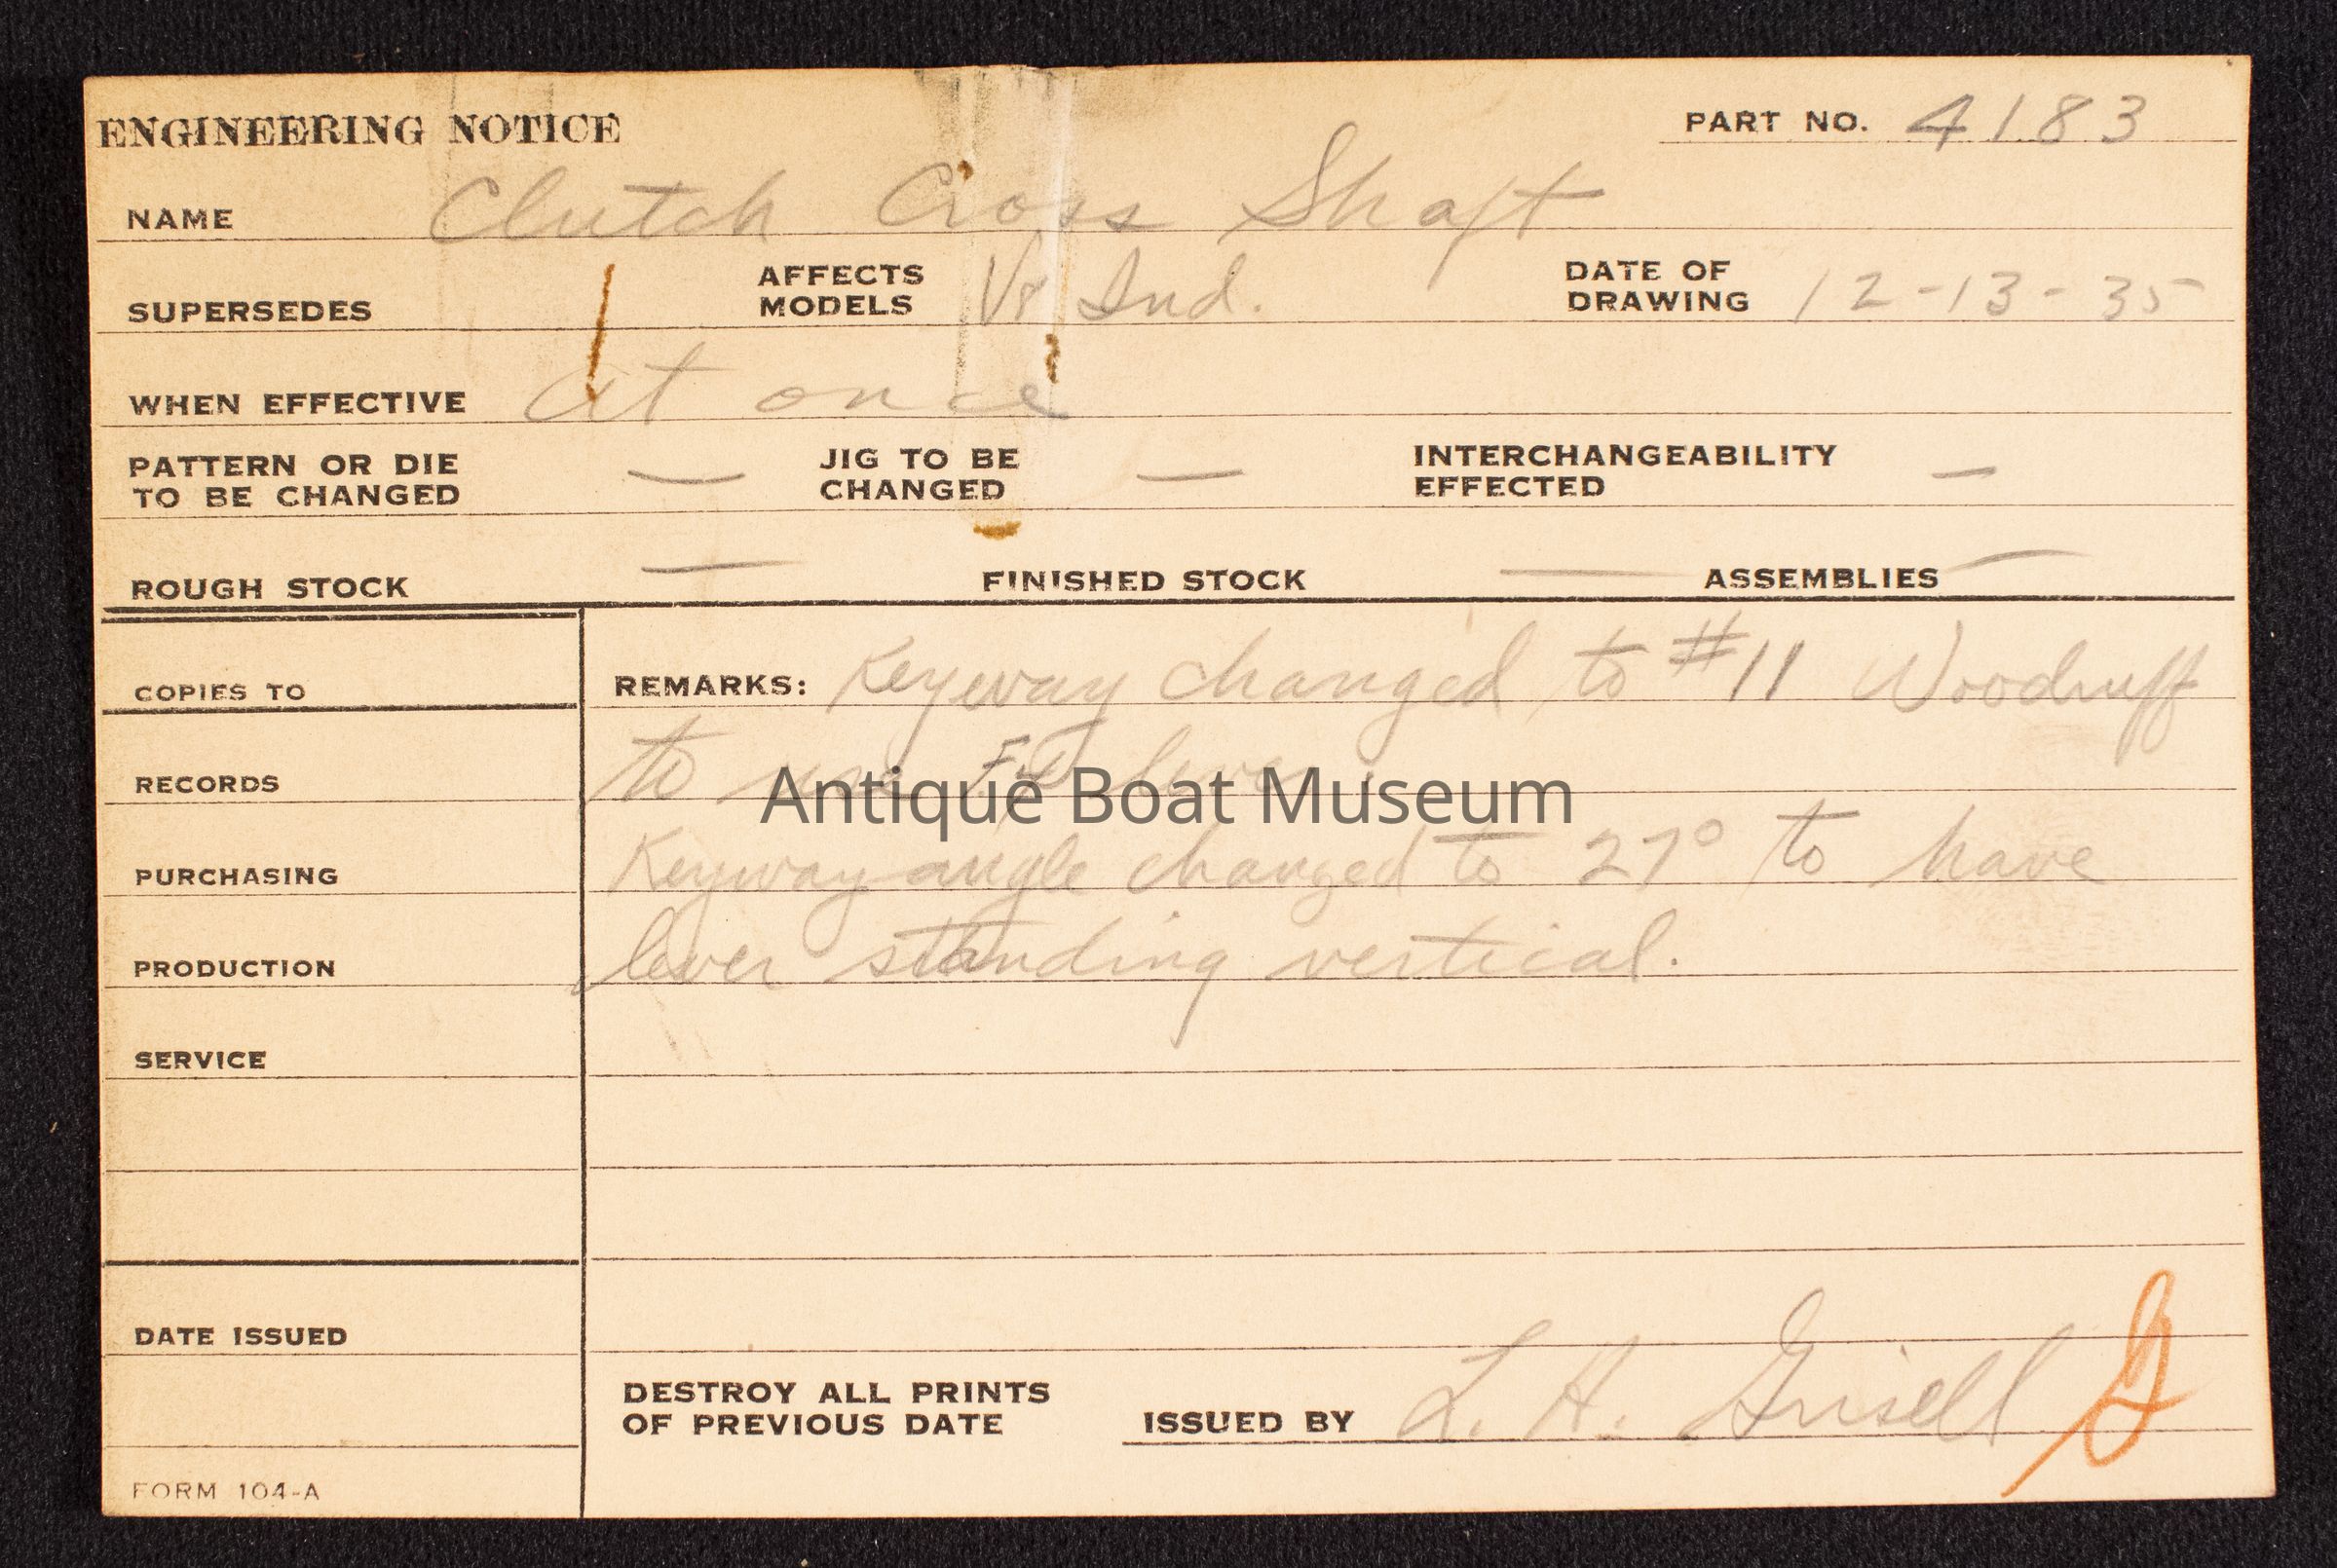 ENGINEERING NOTICE PART NO. 4183
NAME Clutch Cross Shaft
SUPERSEDES AFFECTS MODELS V8 Ind. DATE OF DRAWING 12-13-35
WHEN EFFECTIVE at once
PATTERN OR DIE TO BE CHANGED — JIG TO BE CHANGED — INTERCHANGEABILITY EFFECTED —
ROUGH STOCK — FINISHED STOCK — ASSEMBLIES —
COPIES TO
REMARKS: Keyway changed to #11 Woodruff
RECORDS
to use lever.
Antique Boat Museum
PURCHASING
Keyway angle changed to 27° to have
PRODUCTION
lever standing vertical.
SERVICE
DATE ISSUED
DESTROY ALL PRINTS
OF PREVIOUS DATE
ISSUED BY L. H. Grisell G
FORM 104-A